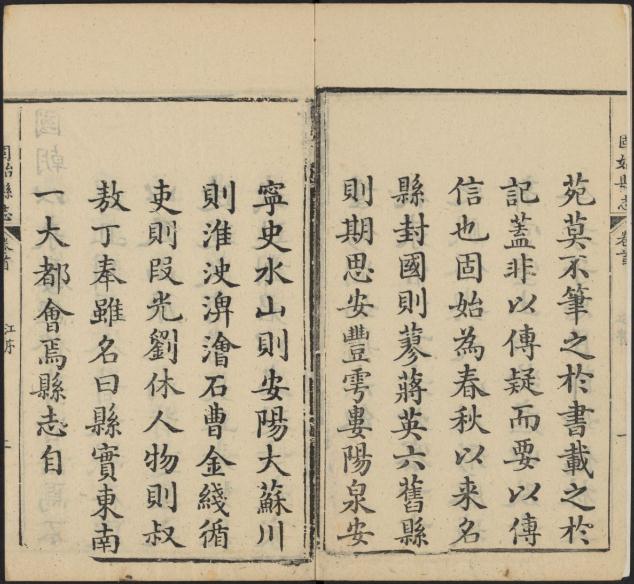 固始縣志 卷首
苑莫不筆之於書載之於
記蓋非以傳疑而要以傳
信也固始為春秋以来名
縣封國則蓼蔣英六舊縣
則期思安豐雩婁陽泉安
寧史水山則安陽大蘇川
則淮泱淠澮石曹金綫循
吏則叚光劉休人物則叔
敖丁奉雖名曰縣實東南
一大都會焉縣志自
固始縣志 卷首 江序 二